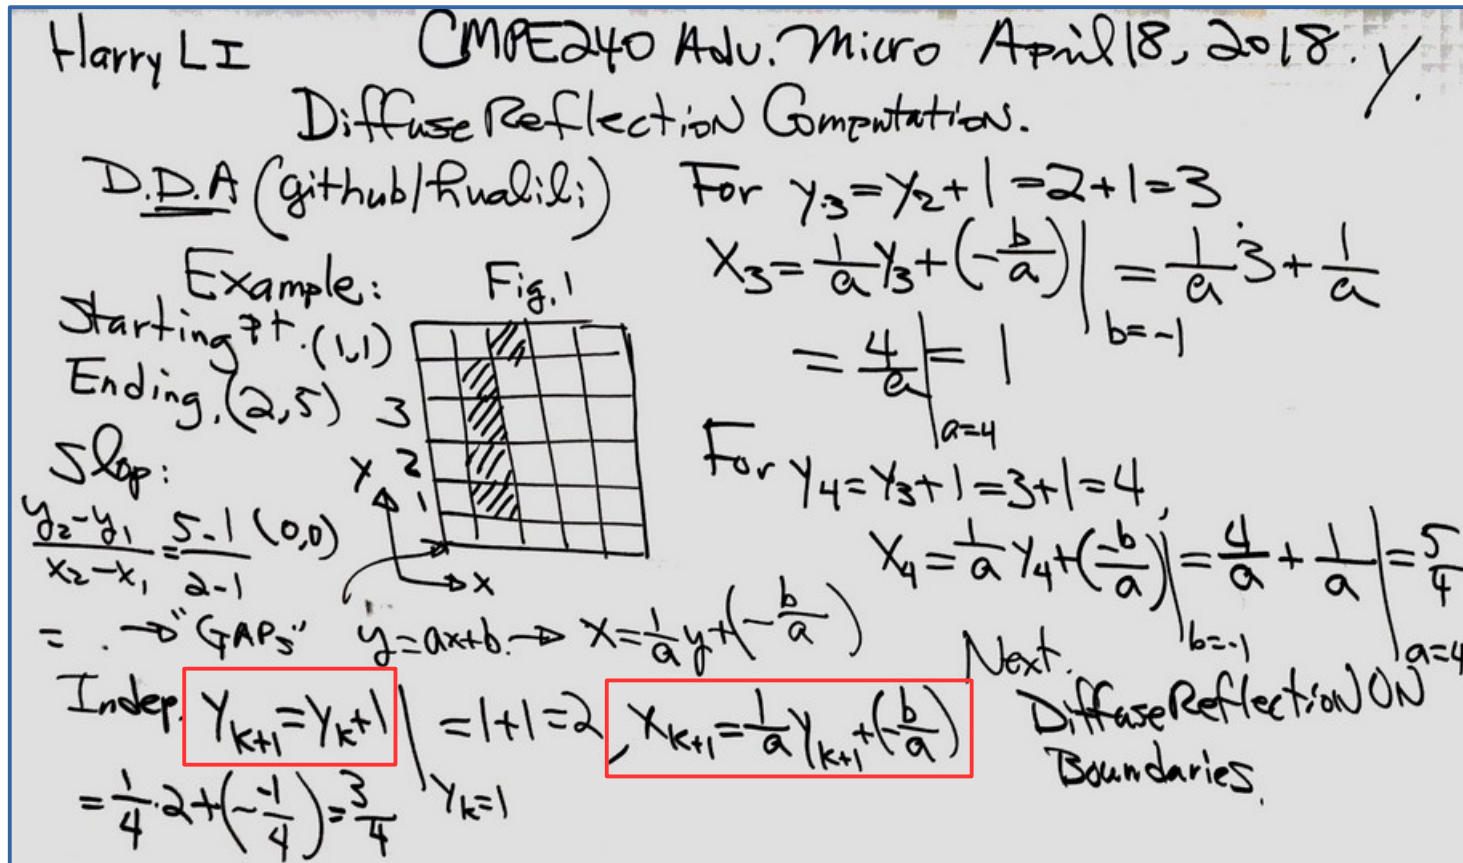 Harry LI CMPE240 Adv. Micro April 18, 2018. Y.
Diffuse Reflection Computation.
D.D.A (github/hualili)
Example: Fig.1
Starting Pt. (1,1)
Ending. (2,5)
3
2
1
Y
X
(0,0)
Slop:
y₂-y₁/x₂-x₁ = 5-1/2-1
= . → "GAPs" y=ax+b. → X=1/a y+(-b/a)
Indep. Yk+1=Yk+1| Yk=1 =1+1=2, Xk+1=1/a Yk+1+(-b/a)
=1/4·2+(--1/4)=3/4
For y₃=y₂+1=2+1=3
X₃=1/a Y₃+(-b/a)| b=-1 =1/a 3+1/a
=4/a| a=4 =1
For Y₄=Y₃+1=3+1=4,
X₄=1/a Y₄+(-b/a)| b=-1 =4/a+1/a| a=4 =5/4
Next.
Diffuse Reflection ON
Boundaries.